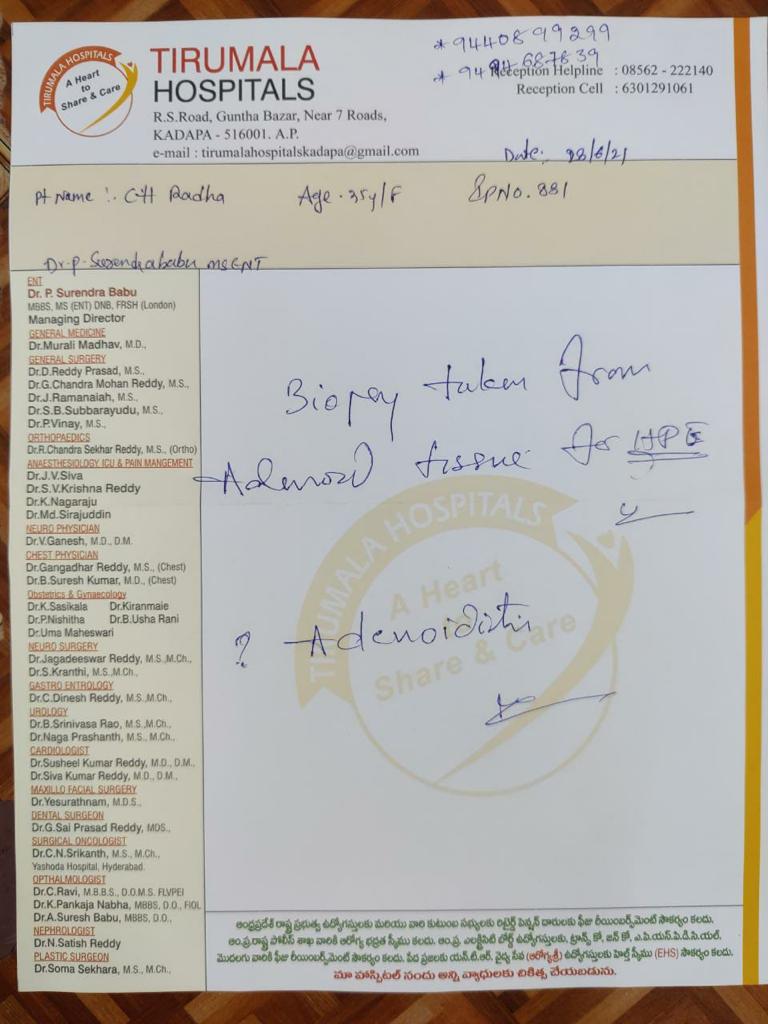 TIRUMALA HOSPITALS
A Heart
to
Share & Care
TIRUMALA
HOSPITALS
R.S.Road, Guntha Bazar, Near 7 Roads,
KADAPA - 516001. A.P.
e-mail : tirumalahospitalskadapa@gmail.com
* 9440899299
* 9494687839
Reception Helpline : 08562 - 222140
Reception Cell : 6301291061
Date: 28/6/21
Pt Name :. CH Radha Age . 35y/F No. 881
Dr. P. Surendrababu MS ENT
ENT
Dr. P. Surendra Babu
MBBS, MS (ENT) DNB, FRSH (London)
Managing Director
GENERAL MEDICINE
Dr.Murali Madhav, M.D.,
GENERAL SURGERY
Dr.D.Reddy Prasad, M.S.,
Dr.G.Chandra Mohan Reddy, M.S.,
Dr.J.Ramanaiah, M.S.,
Dr.S.B.Subbarayudu, M.S.,
Dr.P.Vinay, M.S.,
ORTHOPAEDICS
Dr.R.Chandra Sekhar Reddy, M.S., (Ortho)
ANAESTHESIOLOGY, ICU & PAIN MANGEMENT
Dr.J.V.Siva
Dr.S.V.Krishna Reddy
Dr.K.Nagaraju
Dr.Md.Sirajuddin
NEURO PHYSICIAN
Dr.V.Ganesh, M.D., D.M.
CHEST PHYSICIAN
Dr.Gangadhar Reddy, M.S., (Chest)
Dr.B.Suresh Kumar, M.D., (Chest)
Obstetrics & Gynaecology
Dr.K.Sasikala Dr.Kiranmaie
Dr.P.Nishitha Dr.B.Usha Rani
Dr.Uma Maheswari
NEURO SURGERY
Dr.Jagadeeswar Reddy, M.S.,M.Ch.,
Dr.S.Kranthi, M.S.,M.Ch.,
GASTRO ENTROLOGY
Dr.C.Dinesh Reddy, M.S.,M.Ch.,
UROLOGY
Dr.B.Srinivasa Rao, M.S.,M.Ch.,
Dr.Naga Prashanth, M.S., M.Ch.,
CARDIOLOGIST
Dr.Susheel Kumar Reddy, M.D., D.M.,
Dr.Siva Kumar Reddy, M.D., D.M.,
MAXILLO FACIAL SURGERY
Dr.Yesurathnam, M.D.S.,
DENTAL SURGEON
Dr.G.Sai Prasad Reddy, MDS.,
SURGICAL ONCOLOGIST
Dr.C.N.Srikanth, M.S., M.Ch.,
Yashoda Hospital, Hyderabad.
OPTHALMOLOGIST
Dr.C.Ravi, M.B.B.S., D.O.M.S. FLVPEI
Dr.K.Pankaja Nabha, MBBS, D.O., FIOL
Dr.A.Suresh Babu, MBBS, D.O.,
NEPHROLOGIST
Dr.N.Satish Reddy
PLASTIC SURGEON
Dr.Soma Sekhara, M.S., M.Ch.,
Biopsy taken from
Adenoid tissue for HPE
? Adenoiditis
TIRUMALA HOSPITALS
A Heart
to
Share & Care
ఆంధ్రప్రదేశ్ రాష్ట్ర ప్రభుత్వ ఉద్యోగస్తులకు మరియు వారి కుటుంబ సభ్యులకు రిటైర్డ్ పెన్షన్ దారులకు ఫీజు రీయింబర్స్‌మెంట్ సౌకర్యం కలదు.
ఆం.ప్ర.రాష్ట్ర పోలీస్ శాఖ వారికి ఆరోగ్య భద్రత స్కీము కలదు. ఆం.ప్ర. ఎలక్ట్రిసిటి బోర్డ్ ఉద్యోగస్తులకు, ట్రాన్స్ కో, జెన్ కో, ఎ.పి.యస్.పి.డి.సి.యల్.
మొదలగు వారికి ఫీజు రీయింబర్స్‌మెంట్ సౌకర్యం కలదు. పేద ప్రజలకు యన్.టి.ఆర్. వైద్య సేవ (ఆరోగ్యశ్రీ) ఉద్యోగస్తులకు హెల్త్ స్కీము (EHS) సౌకర్యం కలదు.
మా హాస్పిటల్ నందు అన్ని వ్యాధులకు చికిత్స చేయబడును.